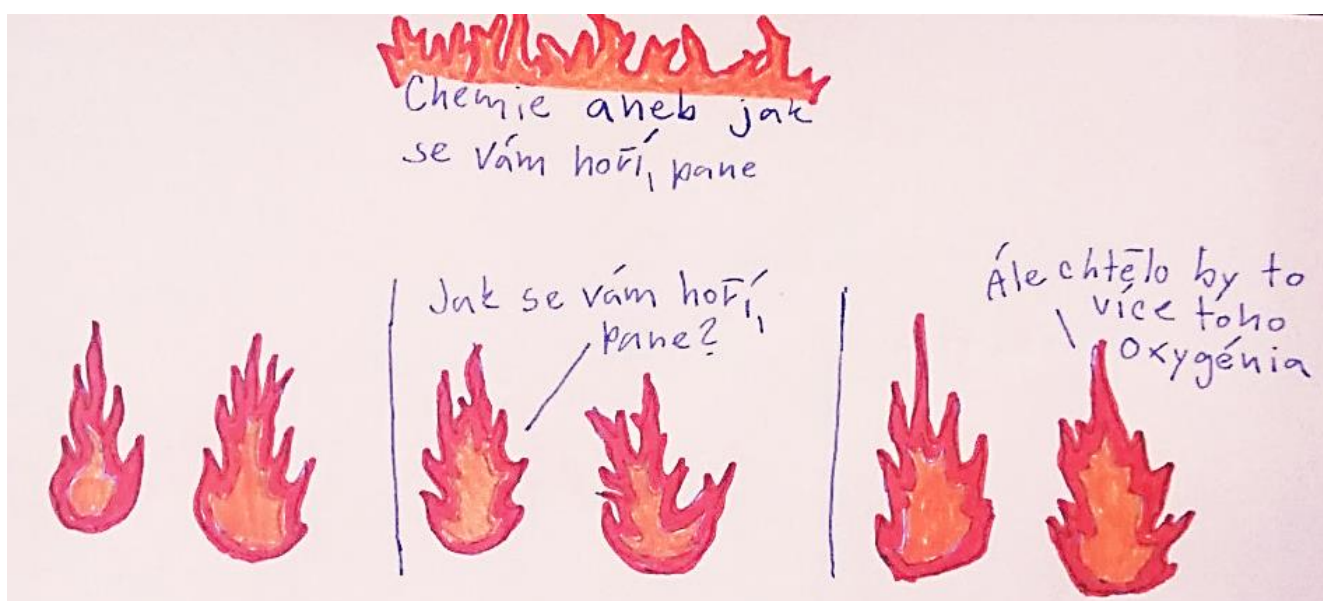 Chemie aneb jak
se vám hoří, pane
Jak se vám hoří,
pane?
Ále chtělo by to
více toho
Oxygénia